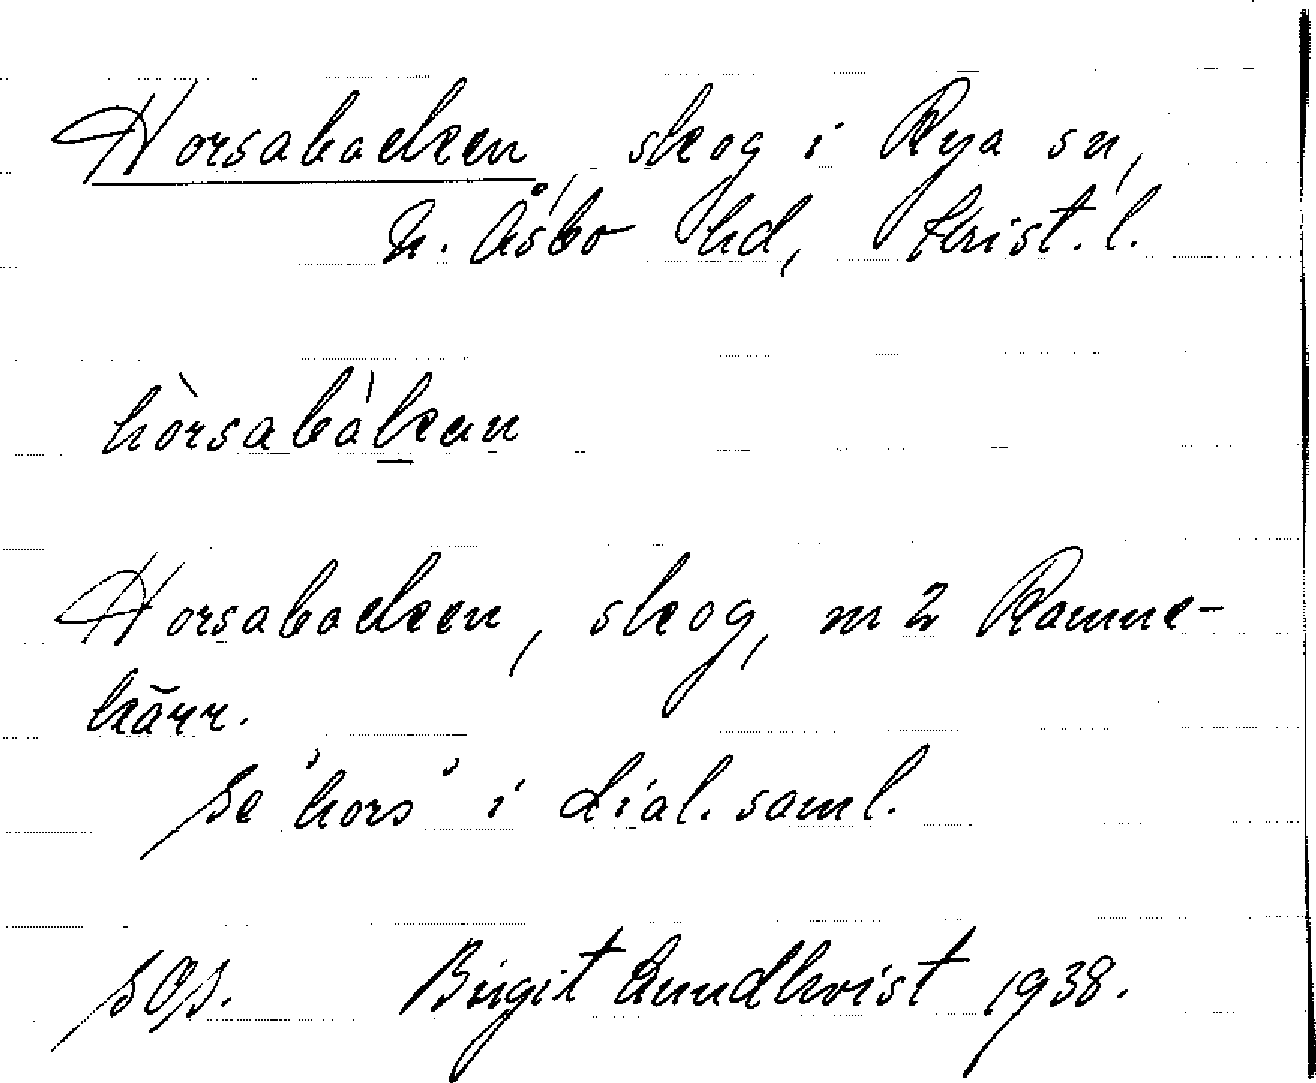 Horsabacken, skog i Rya sn,
N. Åsbo hd, Krist. l.
hòrsabàkan
Horsabacken, skog, m 2 Ramne-
kärr.
Se "hors" i dial. saml.
SOS. Birgit Lundkvist 1938.